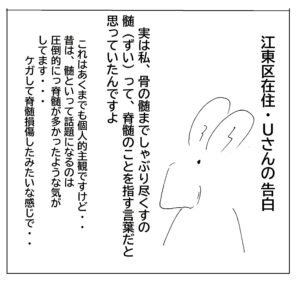 江東区在住・Uさんの告白
実は私、骨の髄までしゃぶり尽くすの
髄（ずい）って、脊髄のことを指す言葉だと
思っていたんですよ
これはあくまでも個人的主観ですけど・・
昔は、髄といって話題になるのは
圧倒的にっ脊髄が多かったような気が
してます・・・
ケガして脊髄損傷したみたいな感じで・・